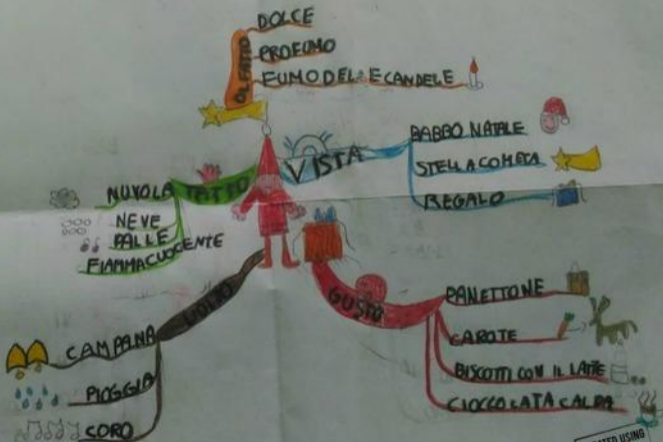 OLFATTO
DOLCE
PROFUMO
FUMO DELLE CANDELE
VISTA
BABBO NATALE
STELLA COMETA
REGALO
TATTO
NUVOLA
NEVE
PALLE
FIAMMA CUOCENTE
UDITO
CAMPANA
PIOGGIA
CORO
GUSTO
PANETTONE
CAROTE
BISCOTTI CON IL LATTE
CIOCCOLATA CALDA
USING